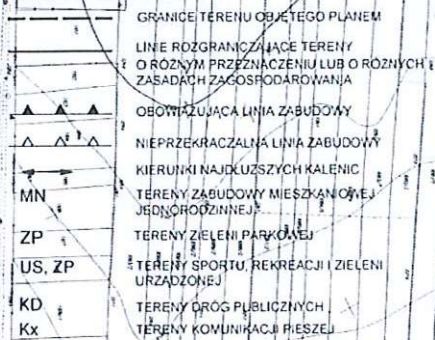 GRANICE TERENU OBJĘTEGO PLANEM
LINIE ROZGRANICZAJĄCE TERENY
O RÓŻNYM PRZEZNACZENIU LUB O RÓŻNYCH
ZASADACH ZAGOSPODAROWANIA
OBOWIĄZUJĄCA LINIA ZABUDOWY
NIEPRZEKRACZALNA LINIA ZABUDOWY
KIERUNKI NAJDŁUŻSZYCH KALENIC
MN TERENY ZABUDOWY MIESZKANIOWEJ
JEDNORODZINNEJ
ZP TERENY ZIELENI PARKOWEJ
US, ZP TERENY SPORTU, REKREACJI I ZIELENI
URZĄDZONEJ
KD TERENY DRÓG PUBLICZNYCH
Kx TERENY KOMUNIKACJI PIESZEJ